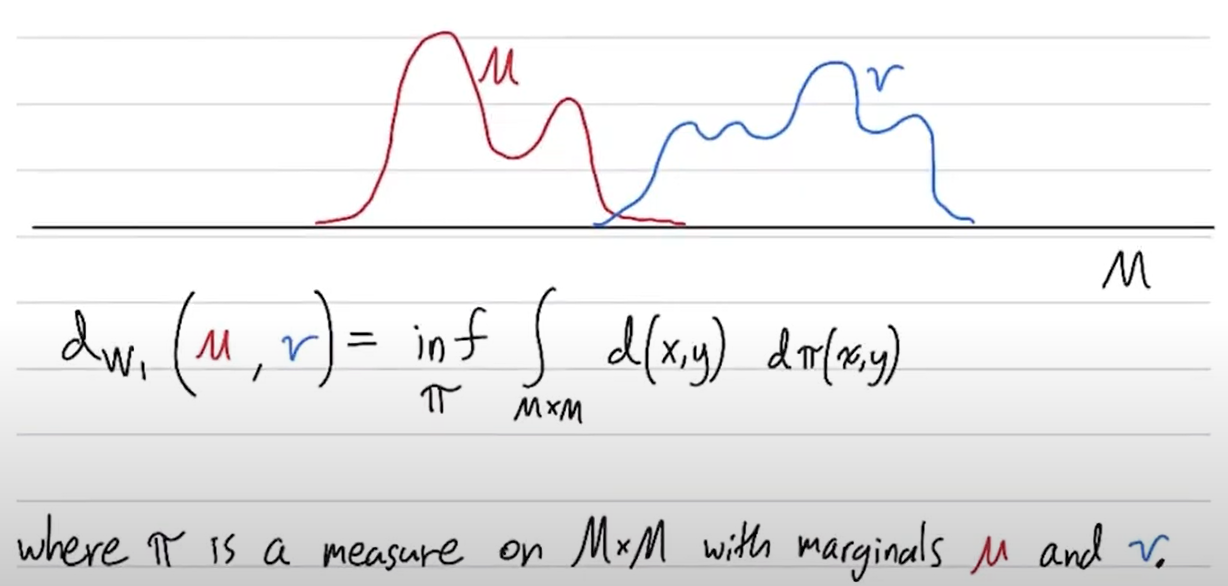 μ
ν
M
d_{W_1}(μ, ν) = inf_π ∫_{M×M} d(x,y) dπ(x,y)
where π is a measure on M×M with marginals μ and ν.